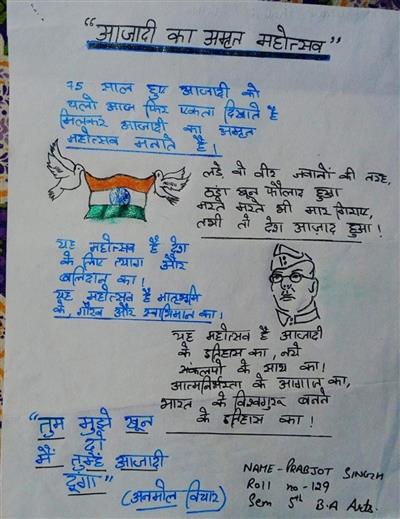 "आजादी का अमृत महोत्सव"
75 साल हुए आजादी को
चलो आज फिर एकता दिखाते है
मिलकर आजादी का अमृत
महोत्सव मनाते है।
लड़े वो वीर जवानों की तरह,
ठंडा खून फौलाद हुआ
मरते मरते भी मार गिराए,
तभी तो देश आज़ाद हुआ।
यह महोत्सव है देश
के लिए त्याग और
बलिदान का।
यह महोत्सव है मातृभूमि
के, गौरव और स्वाभिमान का।
यह महोत्सव है आजादी
के इतिहास का, नये
संकल्पो के साथ का।
आत्मनिर्भरता के आगाज का,
भारत के विश्वगुरु बनते
के इतिहास का।
"तुम मुझे खून
दो
मैं तुम्हें आजादी
दूंगा"
(अनमोल विचार)
NAME- PRABJOT SINGH
Roll no -129
Sem 5th B.A Arts.